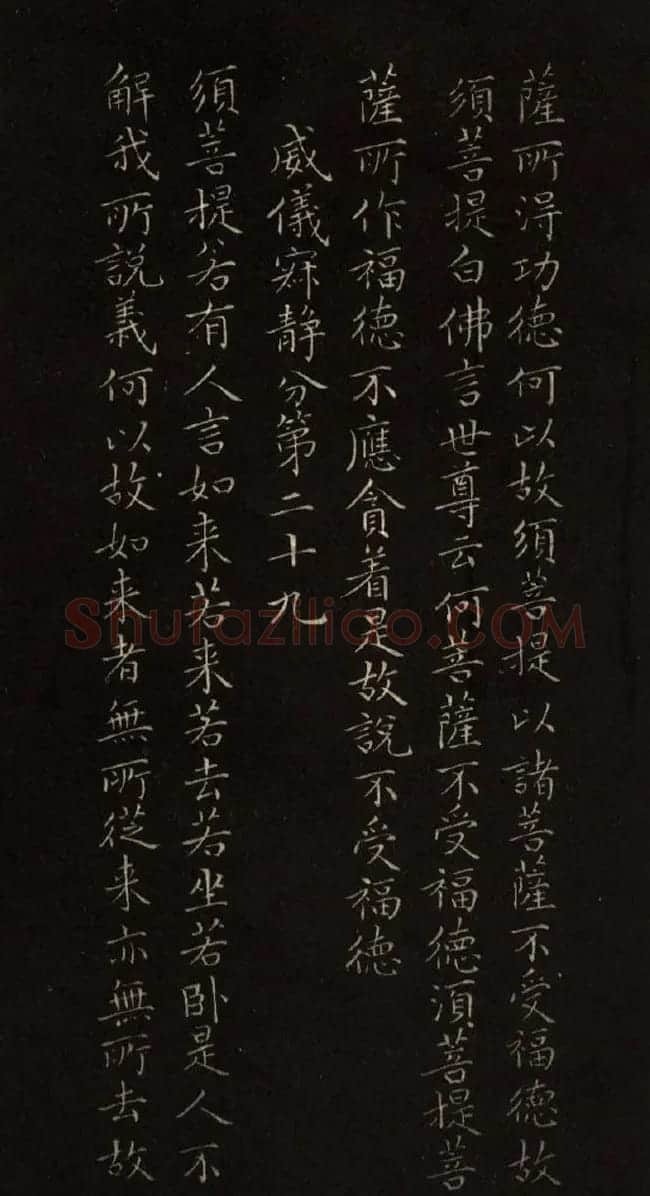 薩所淂功德何以故須菩提以諸菩薩不受福德故
須菩提白佛言世尊云何菩薩不受福德須菩提菩
薩所作福德不應貪着是故說不受福德
威儀寂静分第二十九
須菩提若有人言如来若来若去若坐若卧是人不
解我所說義何以故如来者無所從来亦無所去故
Shufaziliao.COM